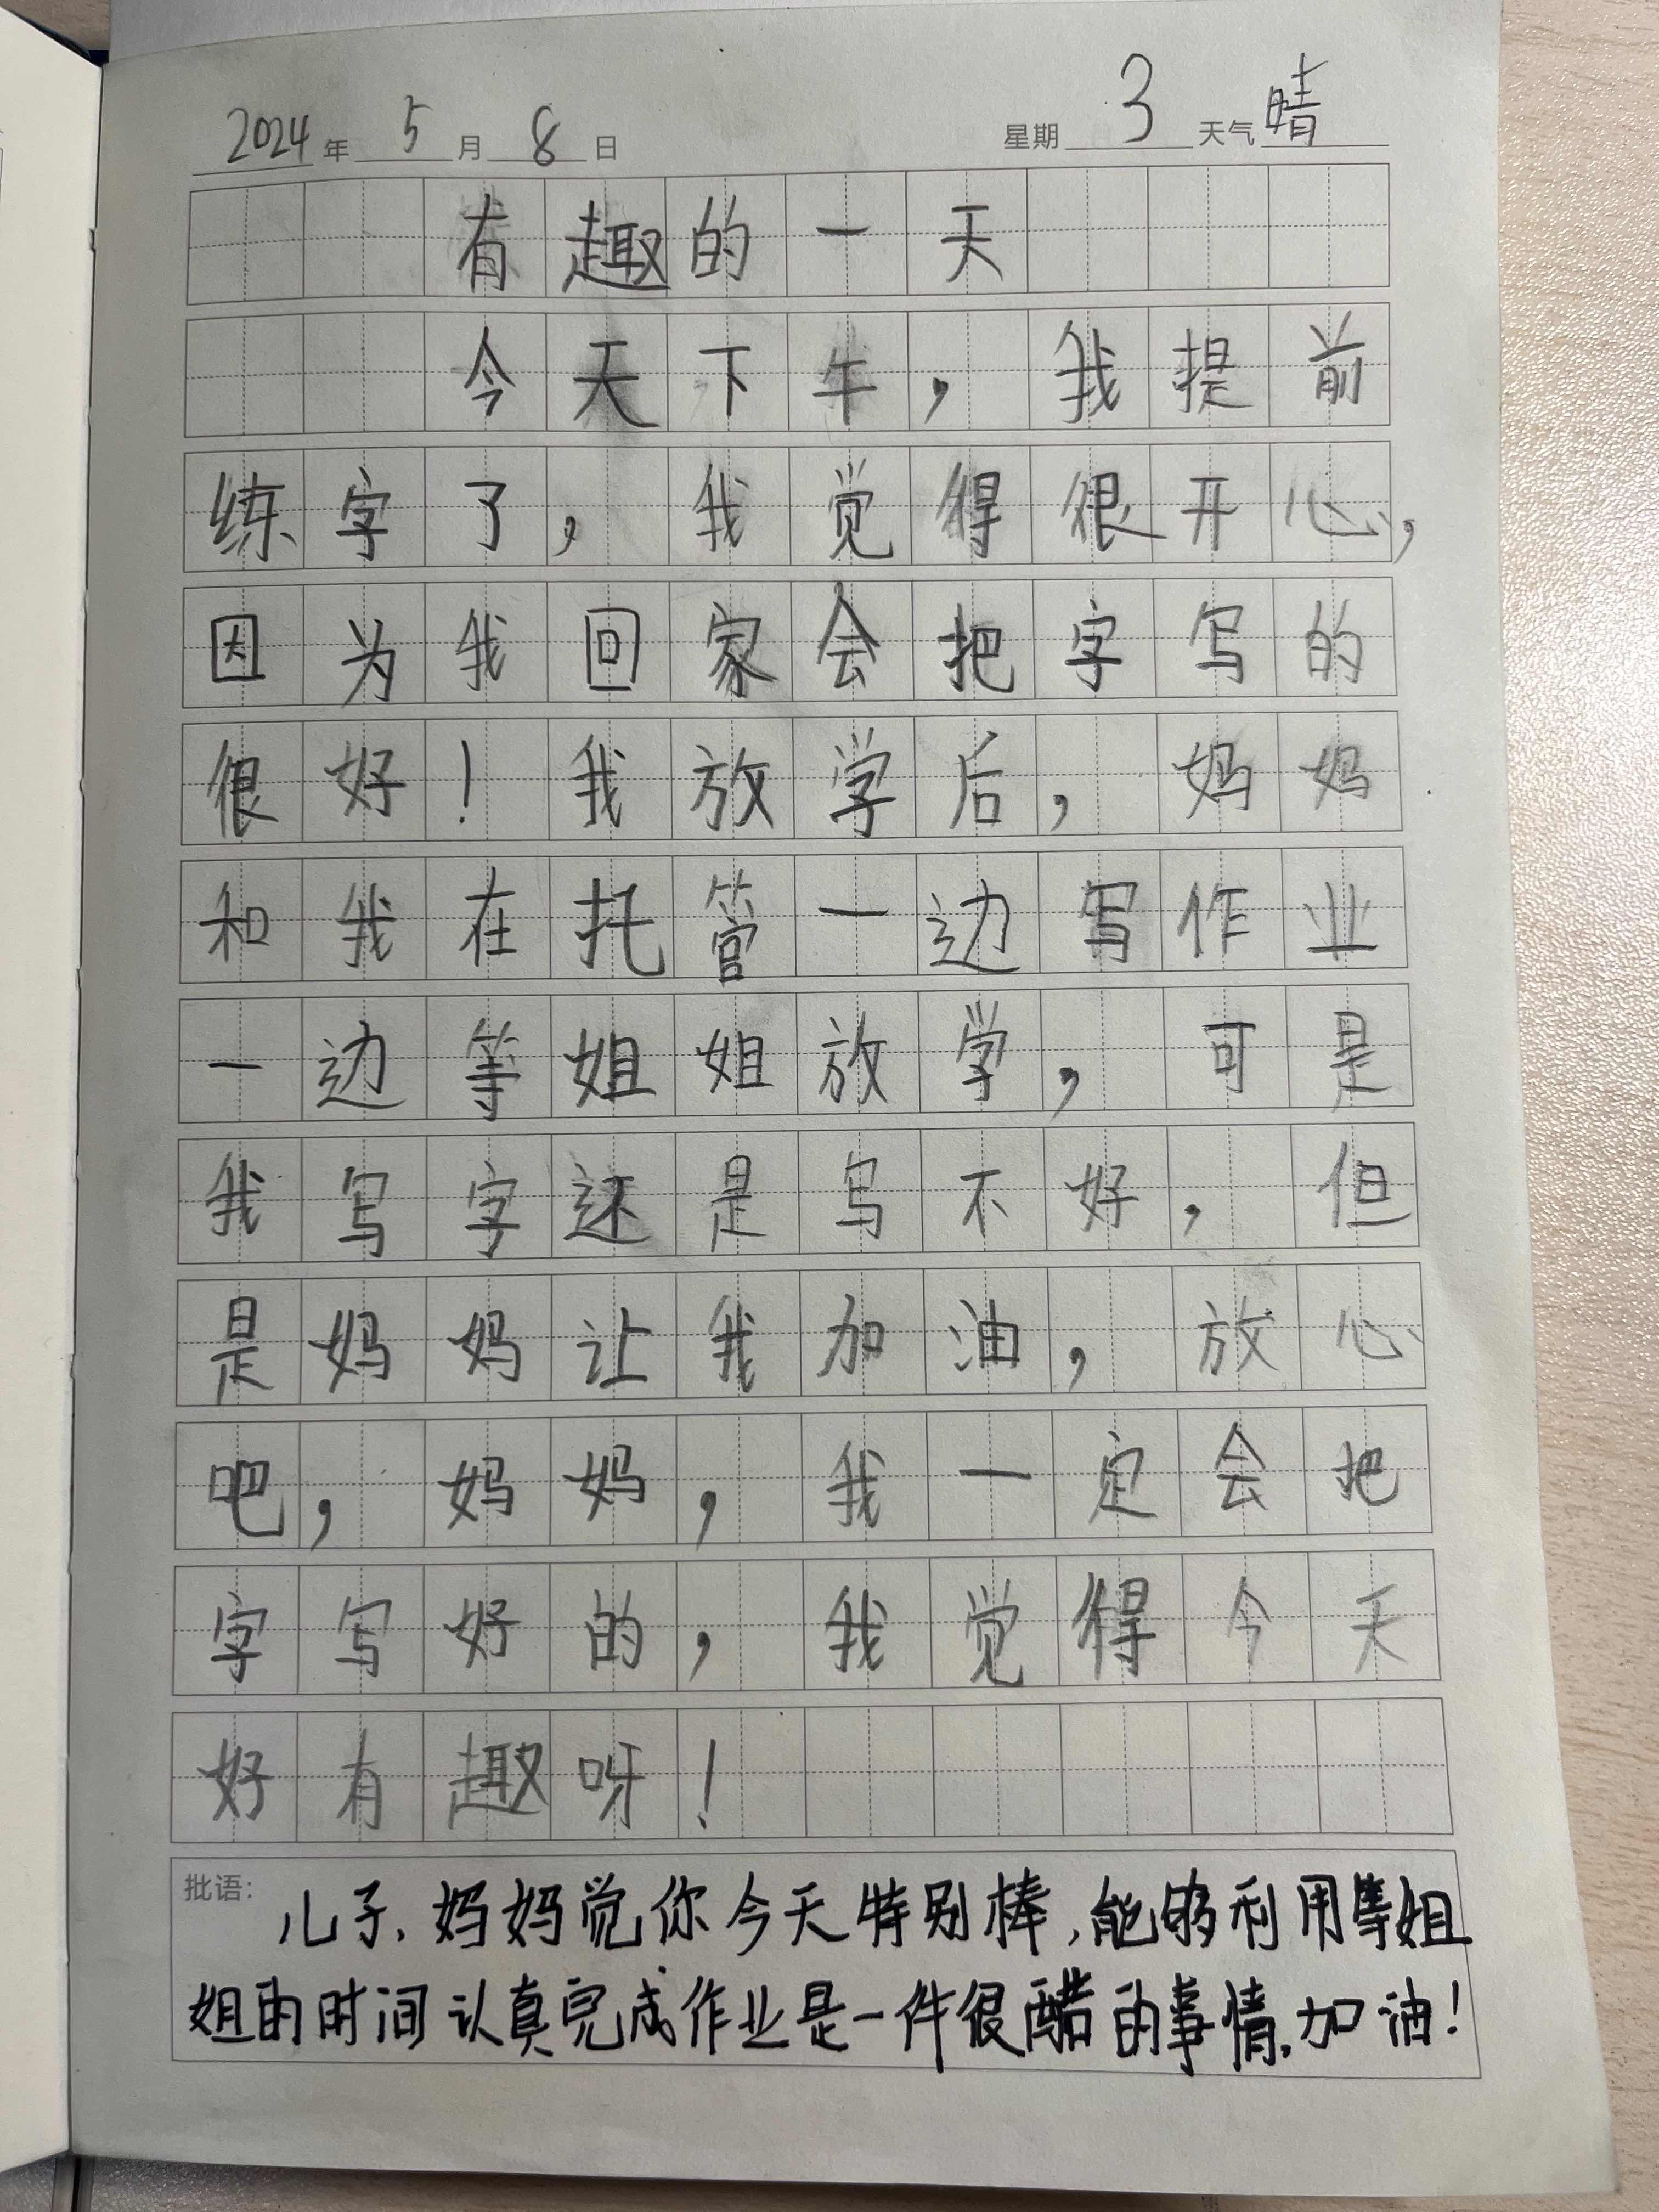 2024年5月8日 星期3天气晴
有趣的一天
今天下午，我提前
练字了，我觉得很开心，
因为我回家会把字写的
很好！我放学后，妈妈
和我在托管一边写作业
一边等姐姐放学，可是
我写字还是写不好，但
是妈妈让我加油，放心
吧，妈妈，我一定会把
字写好的，我觉得今天
好有趣呀！
批语：儿子、妈妈觉你今天特别棒，能够利用等姐
姐的时间认真完成作业是一件很醋的事情，加油！